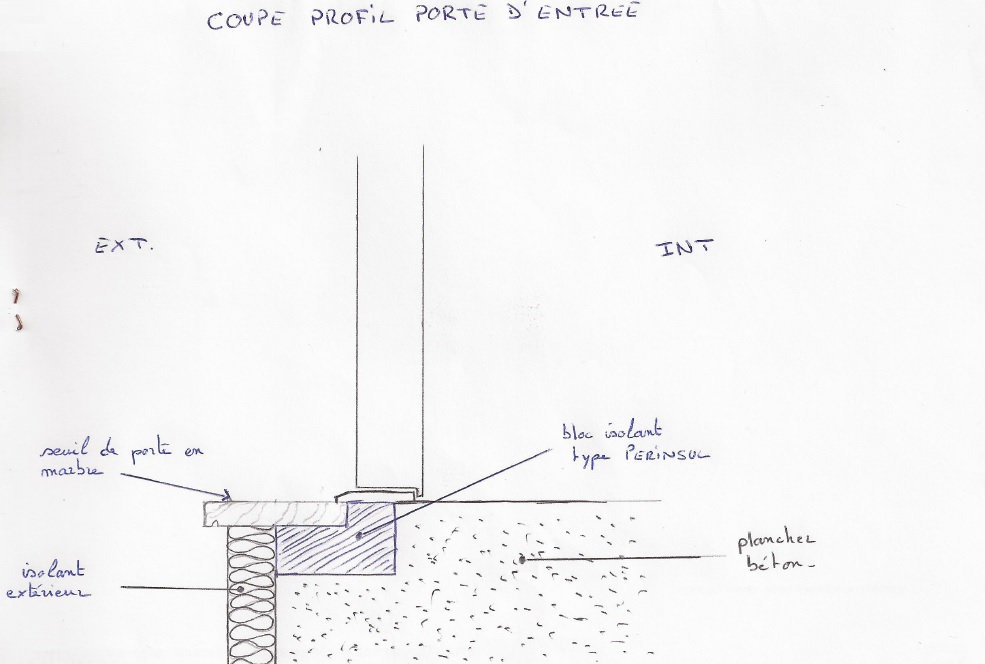 COUPE PROFIL PORTE D'ENTREE
EXT.
INT
seuil de porte en
marbre
bloc isolant
type PERINSUL
plancher
béton-
isolant
extérieur